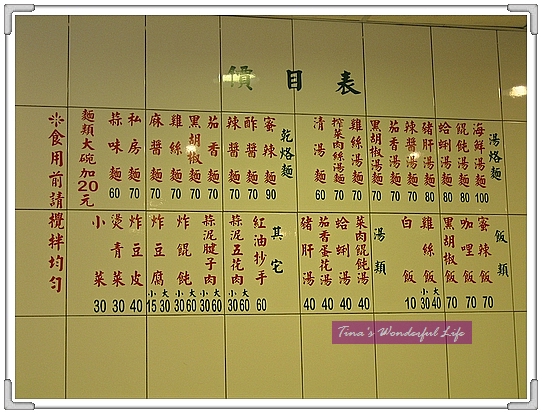 價目表
湯烙麵
海鮮湯麵 100
餛飩湯麵 80
蛤蜊湯麵 80
豬肝湯麵 80
辣醬湯麵 70
茄香湯麵 70
黑胡椒湯麵 70
雞絲湯麵 70
榨菜肉絲湯麵 70
清湯麵 60
乾烙麵
蜜辣麵 90
酢醬麵 70
辣醬麵 70
茄香麵 70
黑胡椒麵 70
雞絲麵 70
麻醬麵 70
私房麵 70
蒜味麵 60
麵類大碗加20元
※食用前請攪拌均勻
飯類
蜜辣飯 70
咖哩飯 70
黑胡椒飯 70
雞絲飯 大40 小30
白飯 10
湯類
菜肉餛飩湯 40
蛤蜊湯 40
茄香蛋花湯 40
豬肝湯 40
其它
紅油抄手 60
蒜泥五花肉 大60 小30
蒜泥腱子肉 大60 小30
炸餛飩 大60 小30
炸豆腐 大30 小15
炸豆皮 40
燙青菜 30
小菜 30
Tina's Wonderful Life